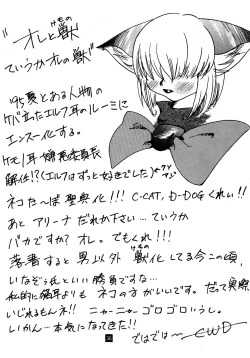 "オレと獣"
けもの
ていうかオレの獣"
'95夏とある人物の
ケバ立ったエルフ耳のルーミに
エンスー化する。
ケモノ耳・嫌悪委員長
解任!?(エルフはずっと好きでした)
ネコたーぼ聖典化!!! C-CAT, D-DOGくれい!!
あと アリーナ だれか下さい…ていうか
バカですか? オレ。でもくれ!!!
落着すると 男 以外 獣化してる今この頃、
けもの
いなぞう氏といい勝負ですな…
私的に 猫耳よりも ネコの方がいいです。だって実際
いじれるもんネ!! ニャーニャー ゴロゴロいうし。
いかん…本気になってきた!!
ではでは〜 CWD